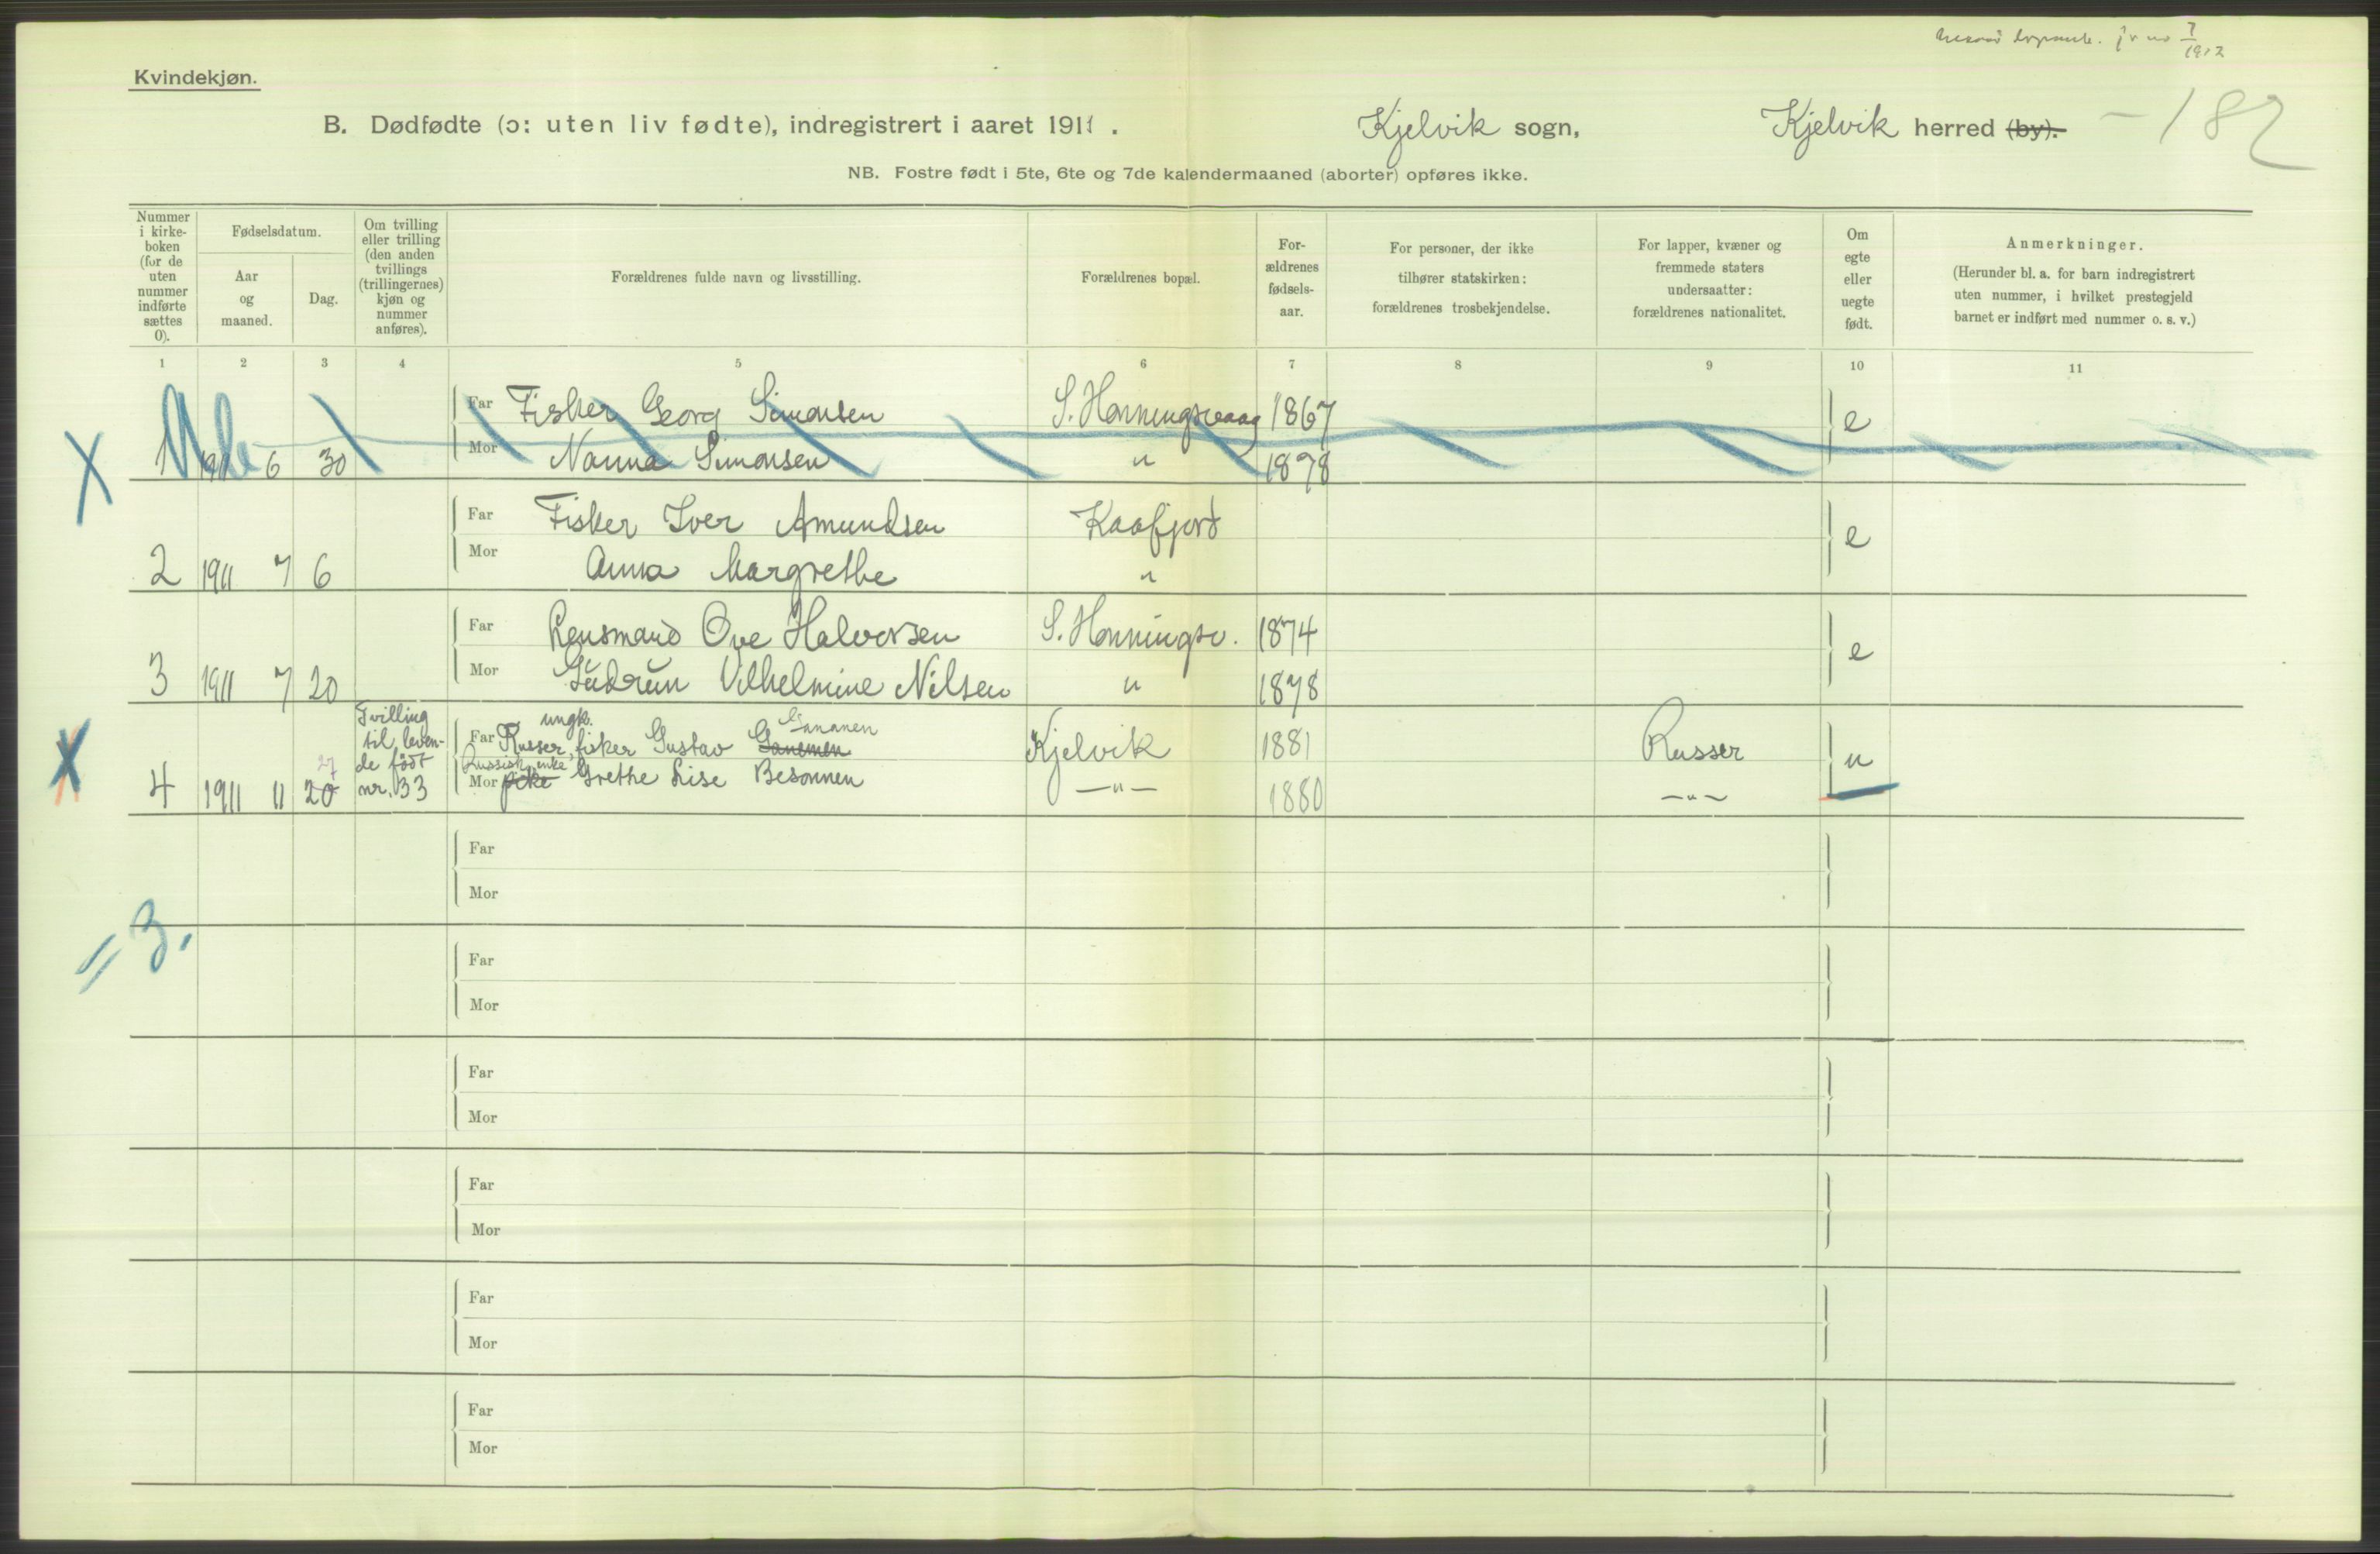 Kvindekjøn.
B. Dødfødte (ɔ: uten liv fødte), indregistrert i aaret 1911. Kjelvik sogn, Kjelvik herred (by). - 182
NB. Fostre født i 5te, 6te og 7de kalendermaaned (aborter) opføres ikke.
Nummer i kirke-boken (for de uten nummer indførte sættes 0).
Fødselsdatum.
Aar og maaned.
Dag.
Om tvilling eller trilling (den anden tvillings (trillingernes) kjøn og nummer anføres).
Forældrenes fulde navn og livsstilling.
Forældrenes bopæl.
For-ældrenes fødsels-aar.
For personer, der ikke tilhører statskirken: forældrenes trosbekjendelse.
For lapper, kvæner og fremmede staters undersaatter: forældrenes nationalitet.
Om egte eller uegte født.
Anmerkninger.
(Herunder bl. a. for barn indregistrert uten nummer, i hvilket prestegjeld barnet er indført med nummer o. s. v.)
1 2 3 4 5 6 7 8 9 10 11
Far Fisker Georg Simonsen S. Honningsvaag 1867 e
1 1911 6 30 Mor Nanna Simonsen " 1878
Far Fisker Iver Amundsen Kaafjord e
2 1911 7 6 Mor Anna Margrethe "
Far Lensmand Ove Halvorsen S. Honningsv. 1874 e
3 1911 7 20 Mor Gudrun Vilhelmine Nilsen " 1878
Tvilling til leven-de født nr. 33
ungk. Gananen
Far Russer, fisker Gustav Ganemen Kjelvik 1881 Russer u
27 Russisk enke
4 1911 11 20 Mor pike Grethe Lise Besonnen —"— 1880 —"—
Far
Mor
= 3.
Far
Mor
Far
Mor
Far
Mor
Far
Mor
Far
Mor